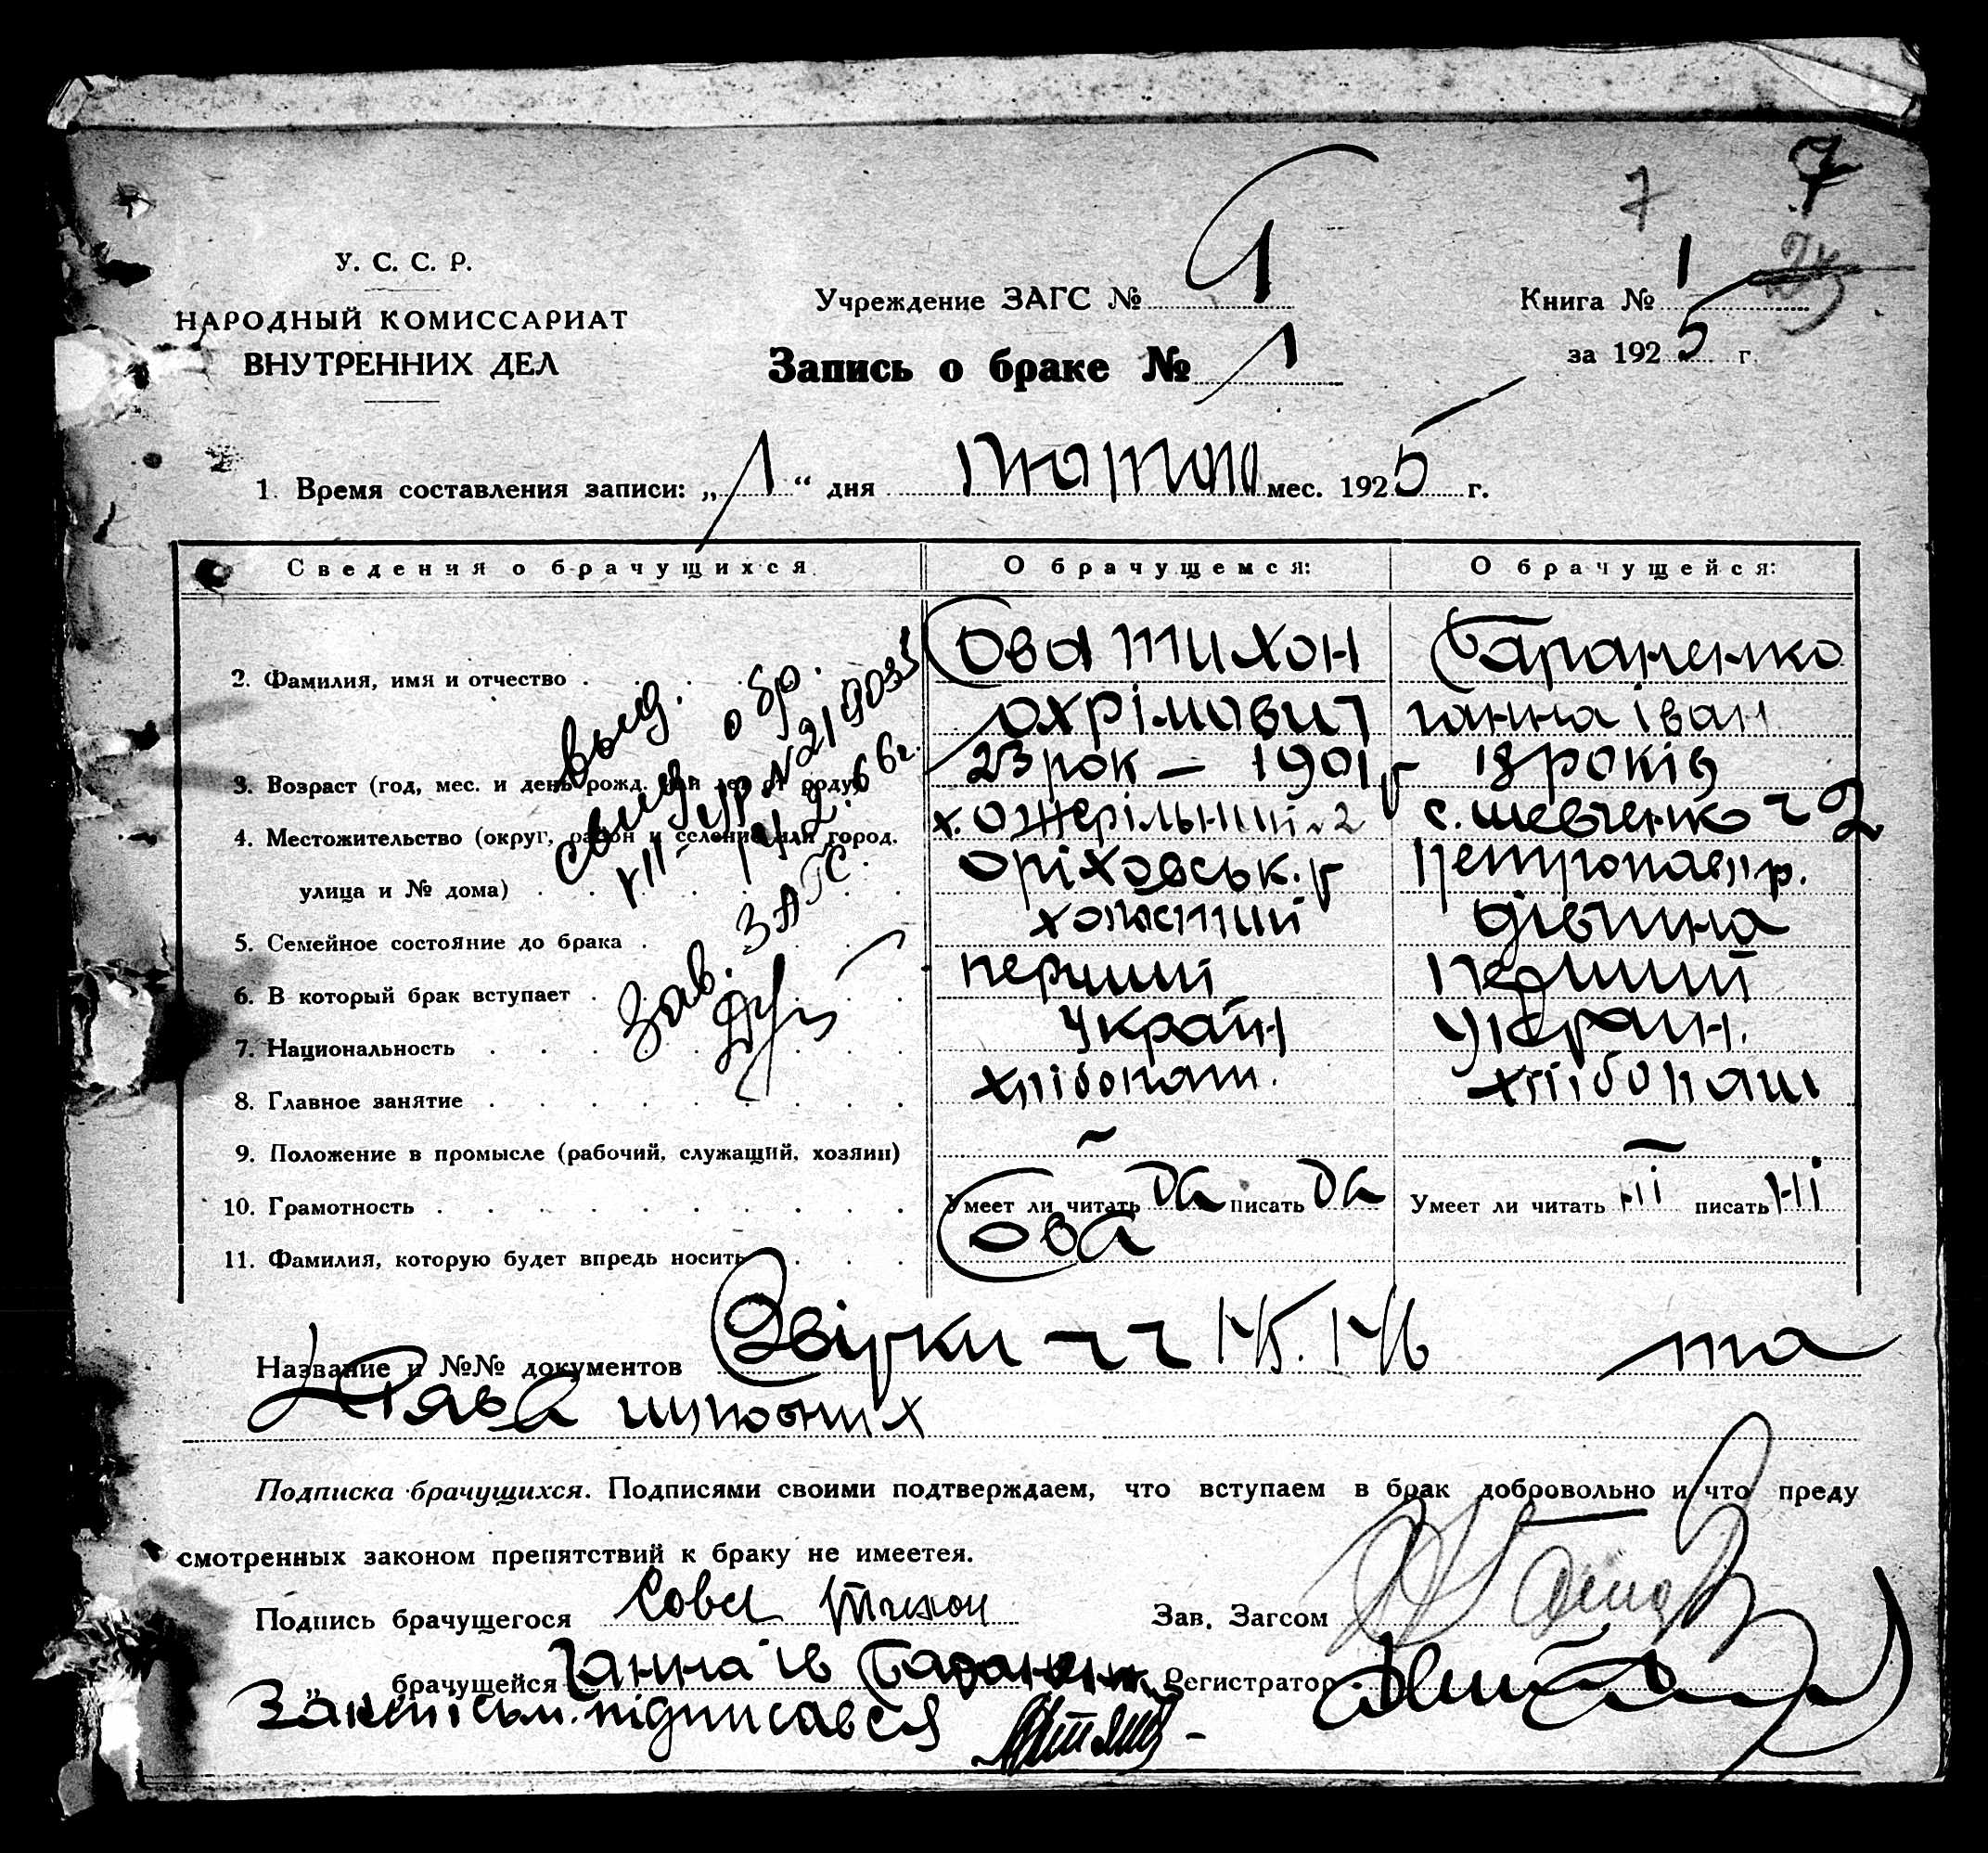 7 7
У. С. С. Р.
НАРОДНЫЙ КОМИССАРИАТ
ВНУТРЕННИХ ДЕЛ
Учреждение ЗАГС №
Книга № 1
за 1925 г.
Запись о браке № 1
1. Время составления записи: „1“ дня мес. 1925 г.
Сведения о брачущихся О брачущемся: О брачущейся:
2. Фамилия, имя и отчество . Сова Тихон Бараненко
Охрімович Ганна Іван
3. Возраст (год, мес. и день рожд. или лет от роду) 23 рок — 1901 р 18 років
4. Местожительство (округ, район и селение или город. х. Ожерільний с. Шевченко
улица и № дома) . Оріховськ. р Петропавл р.
5. Семейное состояние до брака . холостий дівчина
6. В который брак вступает . перший перший
7. Национальность . Україн Україн.
8. Главное занятие . хлібопаш. хлібопаш
9. Положение в промысле (рабочий, служащий, хозяин) — —
10. Грамотность . Умеет ли читать да писать да Умеет ли читать ні писать ні
11. Фамилия, которую будет впредь носить . Сова
выд. свид. о бр.
Зав. ЗАГС
Название и №№ документов 145. 146 та
заява шлюбних
Подписка брачущихся. Подписями своими подтверждаем, что вступаем в брак добровольно и что преду
смотренных законом препятствий к браку не имеетея.
Подпись брачущегося Сова Тихон Зав. Загсом
„ брачущейся Ганна Ів Бараненк Регистратор
підписався